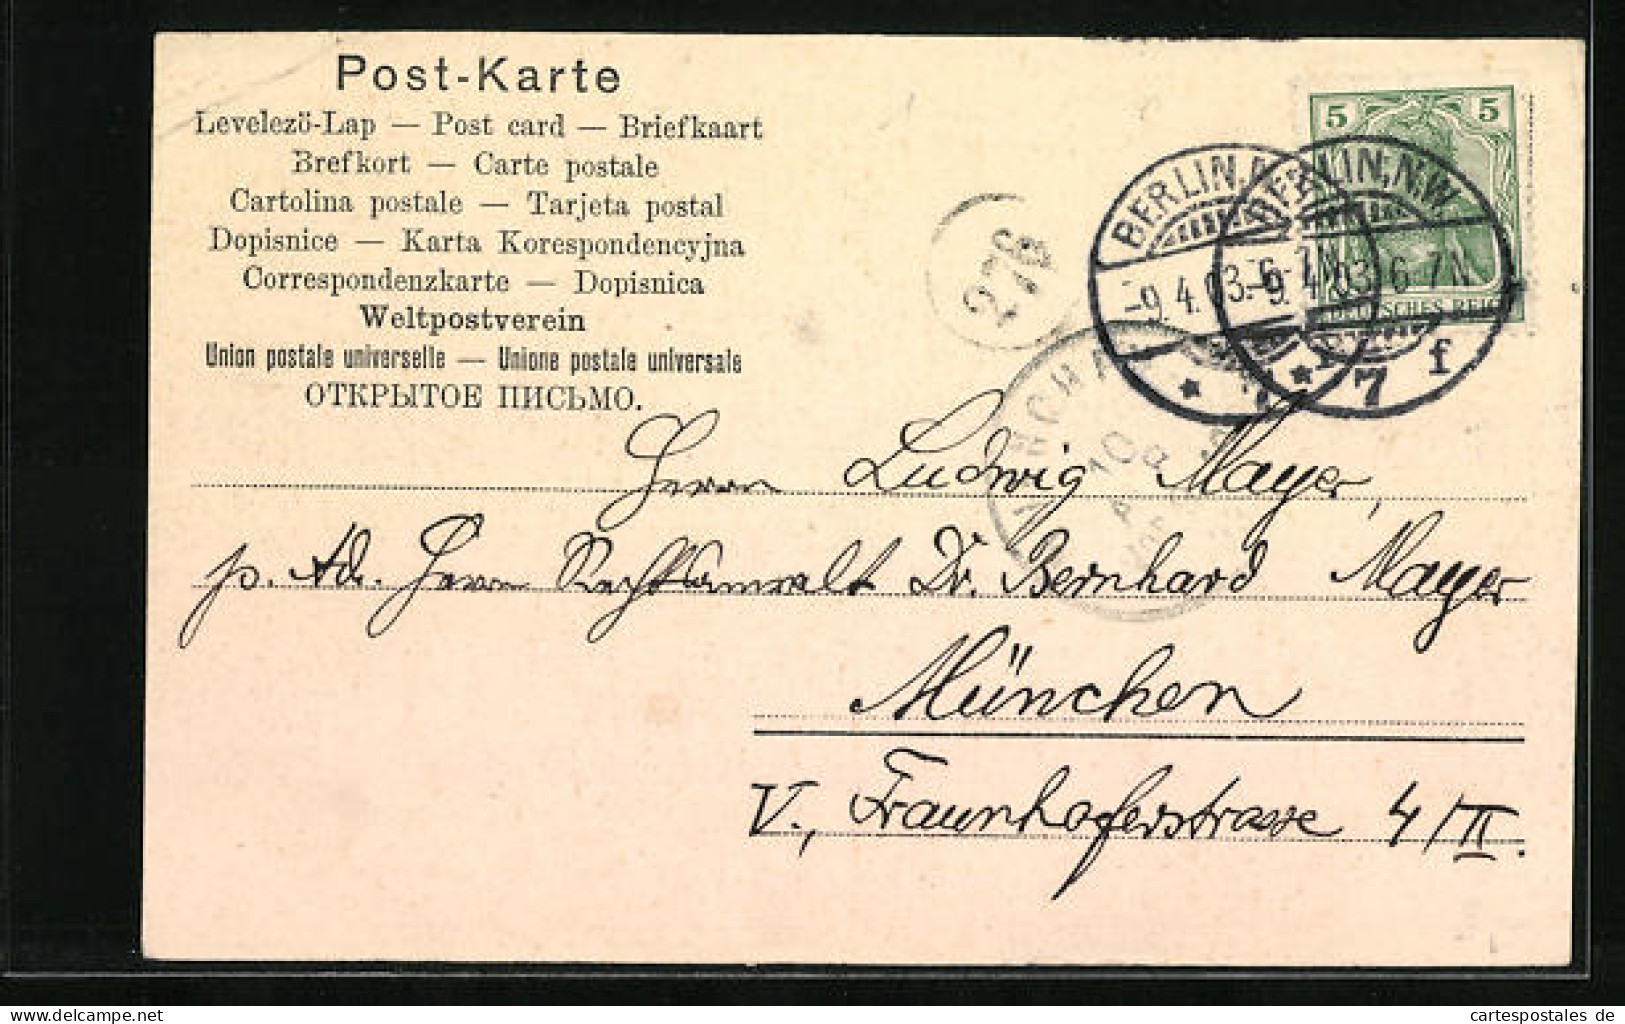 Post-Karte
Levelezö-Lap — Post card — Briefkaart
Brefkort — Carte postale
Cartolina postale — Tarjeta postal
Dopisnice — Karta Korespondencyjna
Correspondenzkarte — Dopisnica
Weltpostverein
Union postale universelle — Unione postale universale
ОТКРЫТОЕ ПИСЬМО.
5 5
DEUTSCHES REICH
BERLIN, N.W.
-9.4.03.6-7N.
* 7
BERLIN, N.W.
-9.4.03.6-7N
* 7 f
276
Herrn Ludwig Mayer,
p. Adr. Herrn Rechtsanwalt Dr. Bernhard Mayer
München
V., Fraunhoferstrasse 4/III.
cartespostales de